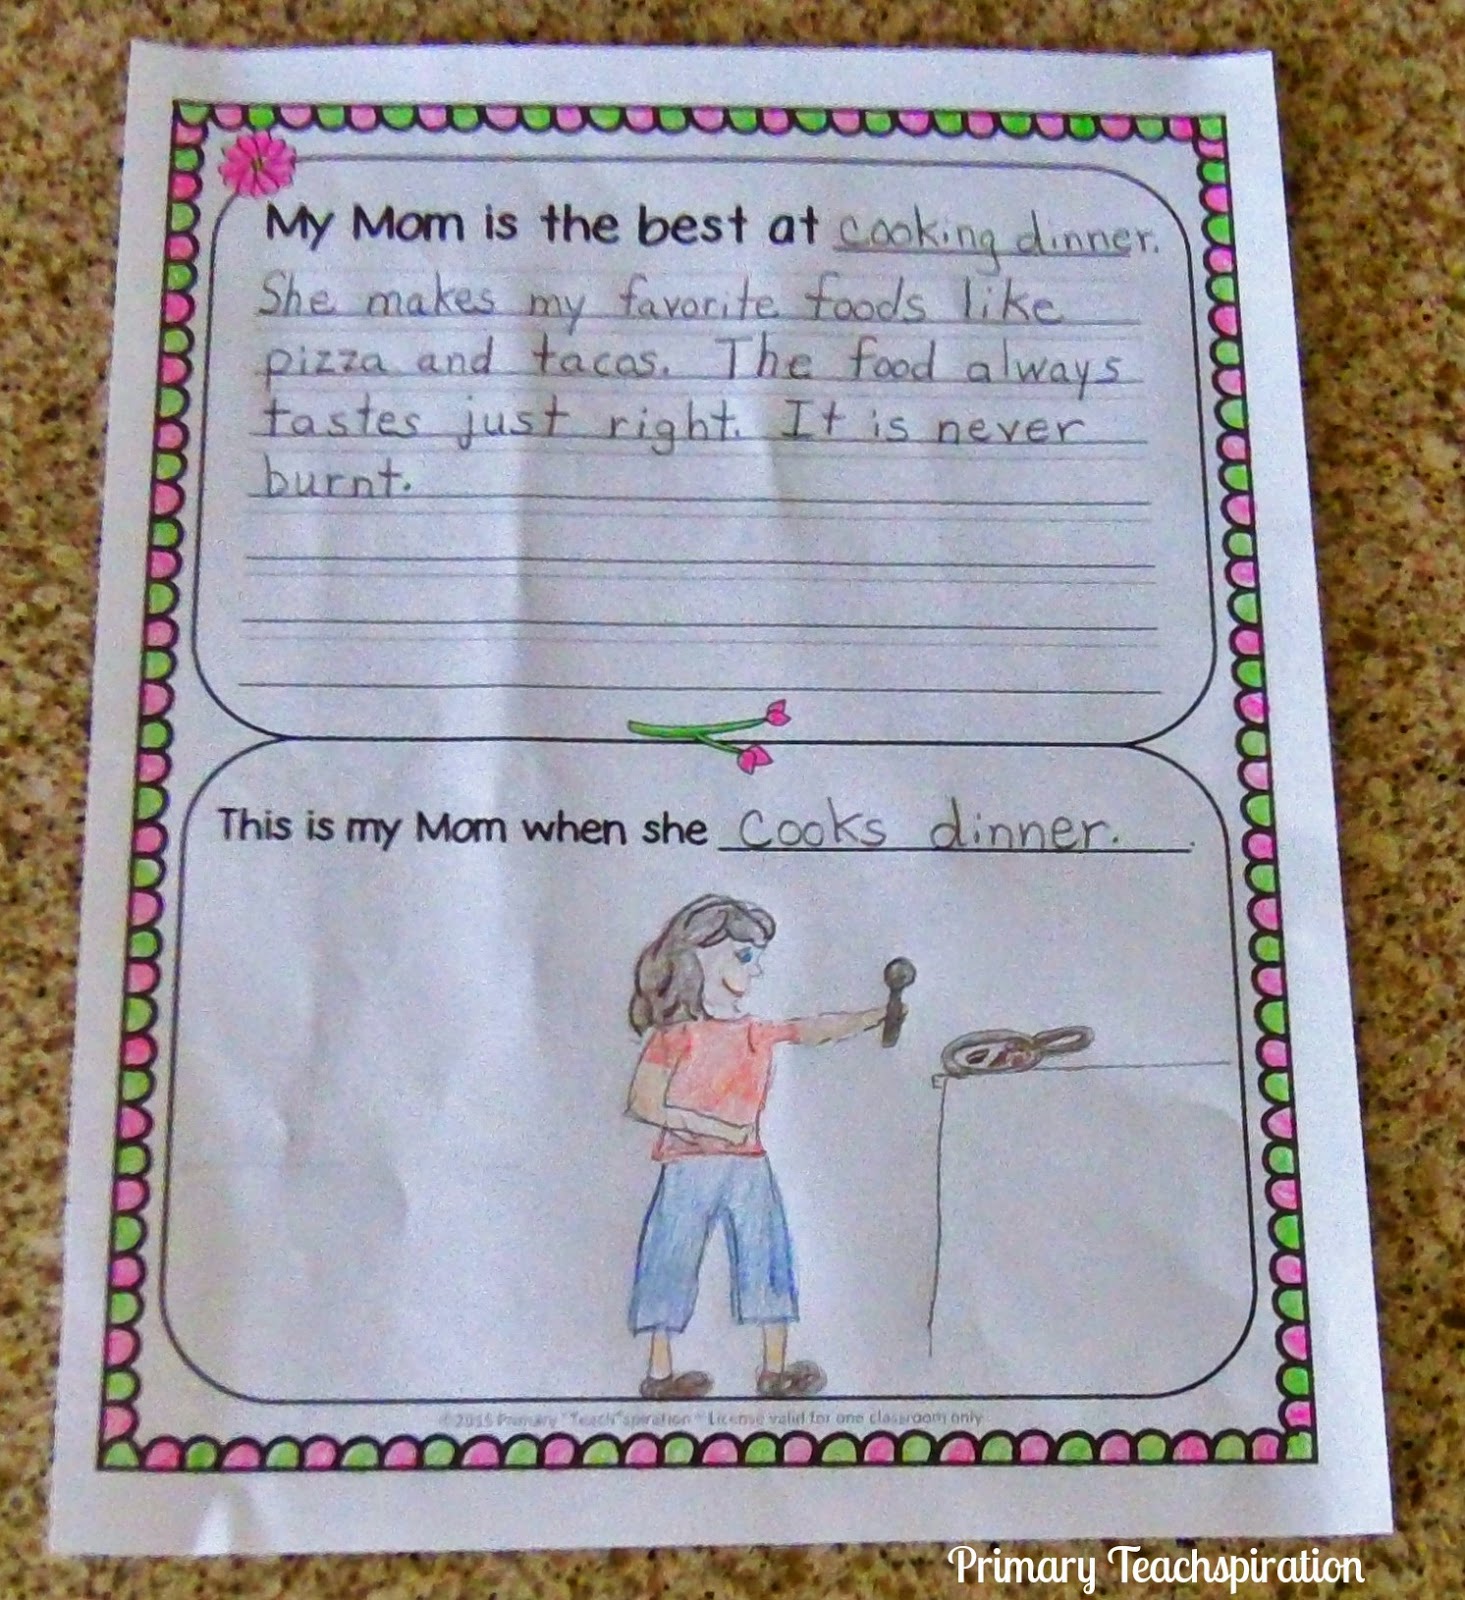 My Mom is the best at cooking dinner.
She makes my favorite foods like
pizza and tacos. The food always
tastes just right. It is never
burnt.
This is my Mom when she cooks dinner. .
©2015 Primary "Teach"spiration ~ License valid for one classroom only
Primary Teachspiration